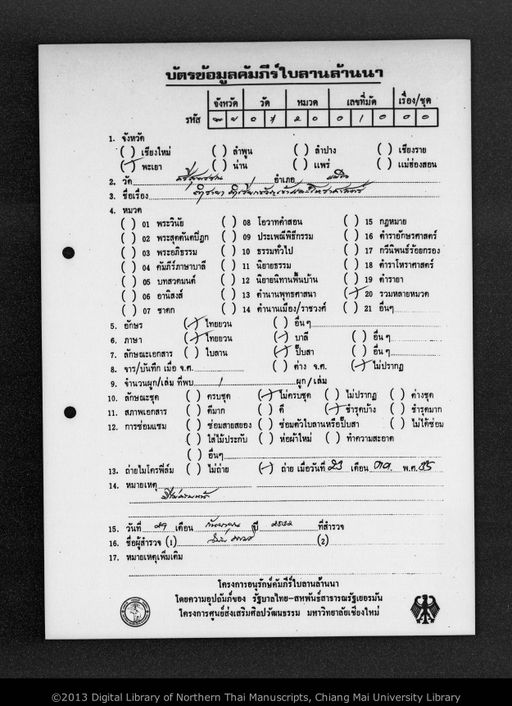 บัตรข้อมูลคัมภีร์ใบลานล้านนา
จังหวัด วัด หมวด เลขที่มัด เรื่อง/ชุด
รหัส พ ย 0 7 2 0 0 1 0 0 0
1. จังหวัด
( ) เชียงใหม่ ( ) ลำพูน ( ) ลำปาง ( ) เชียงราย
(/) พะเยา ( ) น่าน ( ) แพร่ ( ) แม่ฮ่องสอน
2. วัด อำเภอ
3. ชื่อเรื่อง
4. หมวด
( ) 01 พระวินัย ( ) 08 โอวาทคำสอน ( ) 15 กฎหมาย
( ) 02 พระสุตตันตปิฎก ( ) 09 ประเพณีพิธีกรรม ( ) 16 ตำราอักษรศาสตร์
( ) 03 พระอภิธรรม ( ) 10 ธรรมทั่วไป ( ) 17 กวีนิพนธ์ร้อยกรอง
( ) 04 คัมภีร์ภาษาบาลี ( ) 11 นิยายธรรม ( ) 18 ตำราโหราศาสตร์
( ) 05 บทสวดมนต์ ( ) 12 นิยายนิทานพื้นบ้าน ( ) 19 ตำรายา
( ) 06 อานิสงส์ ( ) 13 ตำนานพุทธศาสนา (/) 20 รวมหลายหมวด
( ) 07 ชาดก ( ) 14 ตำนานเมือง/ราชวงศ์ ( ) 21 อื่นๆ
5. อักษร (/) ไทยยวน ( ) อื่น ๆ
6. ภาษา (/) ไทยยวน (/) บาลี ( ) อื่น ๆ
7. ลักษณะเอกสาร ( ) ใบลาน (/) ปั๊บสา ( ) อื่น ๆ
8. จาร/บันทึก เมื่อ จ.ศ. ( ) ค่าง จ.ศ. (/) ไม่ปรากฏ
9. จำนวนผูก/เล่ม ที่พบ 1 ผูก/เล่ม
10. ลักษณะชุด ( ) ครบชุด (/) ไม่ครบชุด ( ) ไม่ปรากฏ ( ) ค่างชุด
11. สภาพเอกสาร ( ) ดีมาก ( ) ดี (/) ชำรุดบ้าง ( ) ชำรุดมาก
12. การซ่อมแซม ( ) ซ่อมสายสยอง ( ) ซ่อมตัวใบลานหรือปั๊บสา ( ) ไม่ได้ซ่อม
( ) ใส่ไม้ประกับ ( ) ห่อผ้าใหม่ ( ) ทำความสะอาด
( ) อื่นๆ
13. ถ่ายไมโครฟิล์ม ( ) ไม่ถ่าย (/) ถ่าย เมื่อวันที่ 23 เดือน พ.ศ. 35
14. หมายเหตุ
15. วันที่ 29 เดือน ปี 2532 ที่สำรวจ
16. ชื่อผู้สำรวจ (1) (2)
17. หมายเหตุเพิ่มเติม
โครงการอนุรักษ์คัมภีร์ใบลานล้านนา
โดยความอุปถัมภ์ของ รัฐบาลไทย-สหพันธ์สาธารณรัฐเยอรมัน
โครงการศูนย์ส่งเสริมศิลปวัฒนธรรม มหาวิทยาลัยเชียงใหม่
©2013 Digital Library of Northern Thai Manuscripts, Chiang Mai University Library